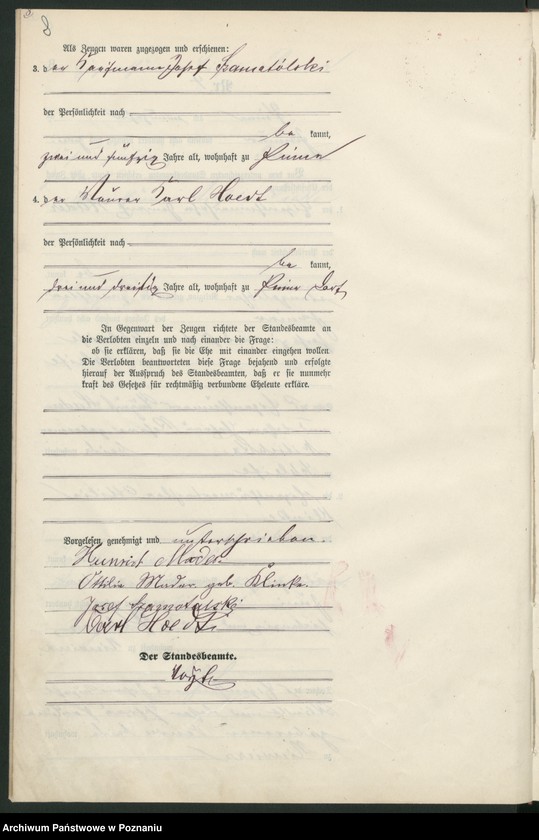 8
Als Zeugen waren zugezogen und erschienen:
3. der Kaufmann Josef Szamotólski
der Persönlichkeit nach
be kannt,
zwei und fünfzig Jahre alt, wohnhaft zu Pinne
4. der Maurer Karl Hoedt
der Persönlichkeit nach
be kannt,
drei und dreißig Jahre alt, wohnhaft zu Pinne Dorf
In Gegenwart der Zeugen richtete der Standesbeamte an
die Verlobten einzeln und nach einander die Frage:
ob sie erklären, daß sie die Ehe mit einander eingehen wollen
Die Verlobten beantworteten diese Frage bejahend und erfolgte
hierauf der Ausspruch des Standesbeamten, daß er sie nunmehr
kraft des Gesetzes für rechtmäßig verbundene Eheleute erkläre.
Vorgelesen, genehmigt und unterschrieben.
Heinrich Mader
Ottilie Mader geb. Klinke.
Josef Szamotulski
Carl Hoedt
Der Standesbeamte.
Archiwum Państwowe w Poznaniu